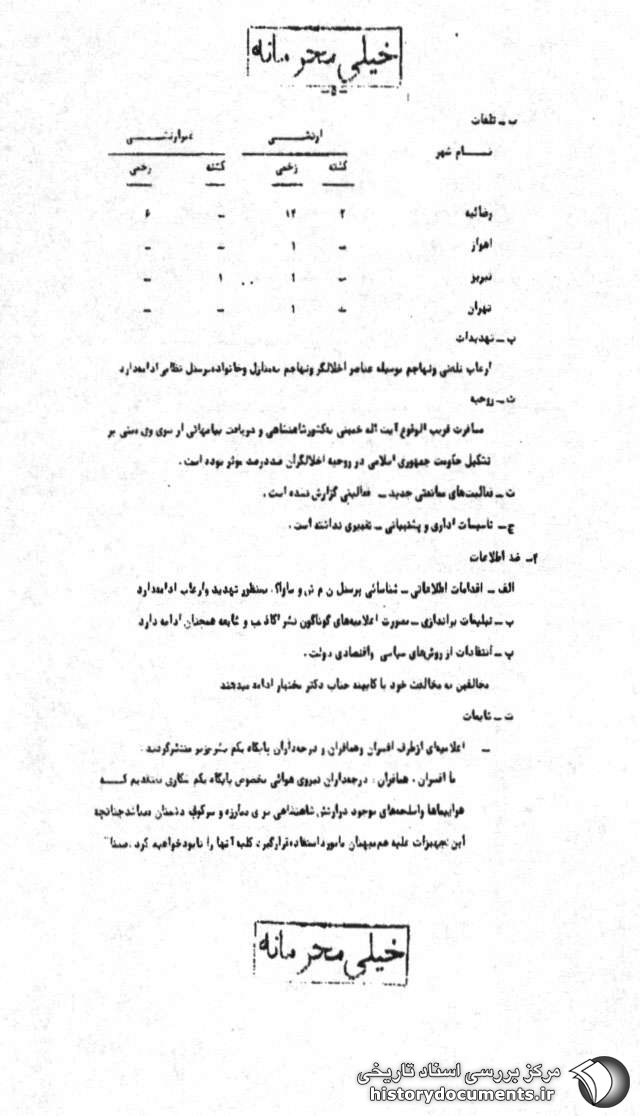 خیلی محرمانه
-۵-
ب ـ تلفات
ارتشی غیرارتشی
نام شهر کشته زخمی کشته زخمی
رضائیه ۲ ۱۴ ـ ۶
اهواز ـ ۱ ـ ـ
تبریز ـ ۱ ۱ ـ
تهران ـ ۱ ـ ـ
پ ـ تهدیدات
ارعاب تلفنی وتهاجم بوسیله عناصر اخلالگر وتهاجم به‌منازل وخانواده‌پرسنل نظامی ادامه‌دارد
ت ـ روحیه
مسافرت قریب الوقوع آیت اله خمینی به‌کشورشاهنشاهی و دریافت پیامهائی از سوی وی مبنی بر
تشکیل حکومت جمهوری اسلامی در روحیه اخلالگران صددرصد موثر بوده است .
ث ـ فعالیت‌های صنعتی جدید ـ فعالیتی گزارش نشده است .
ج ـ تاسیسات اداری و پشتیبانی ـ تغییری نداشته است .
۲ـ ضد اطلاعات
الف ـ اقدامات اطلاعاتی ـ شناسائی پرسنل ن م ش و ساواک بمنظور تهدید وارعاب ادامه‌دارد
ب ـ تبلیغات براندازی ـ بصورت اعلامیه‌های گوناگون نشر اکاذیب و شایعه همچنان ادامه دارد
پ ـ انتقادات از روش‌های سیاسی واقتصادی دولت .
مخالفین به مخالفت خود با کابینه جناب دکتر بختیار ادامه میدهند
ت ـ شایعات
ـ اعلامیه‌ای ازطرف افسران وهمافران و درجه‌داران پایگاه یکم منتشرگردید :
ما افسران ، همافران ، درجه‌داران نیروی هوائی بخصوص پایگاه یکم شکاری معتقدیم کــه
هواپیماها واسلحه‌های موجود درارتش شاهنشاهی برای مبارزه و سرکوب دشمنان میباشدچنانچه
این تجهیزات علیه هم‌میهنان مامورداستفاده‌قرارگیرد کلیه آنها را نابودخواهیم کرد . ضمنا "
خیلی محرمانه
مرکز بررسی اسناد تاریخی
historydocuments.ir